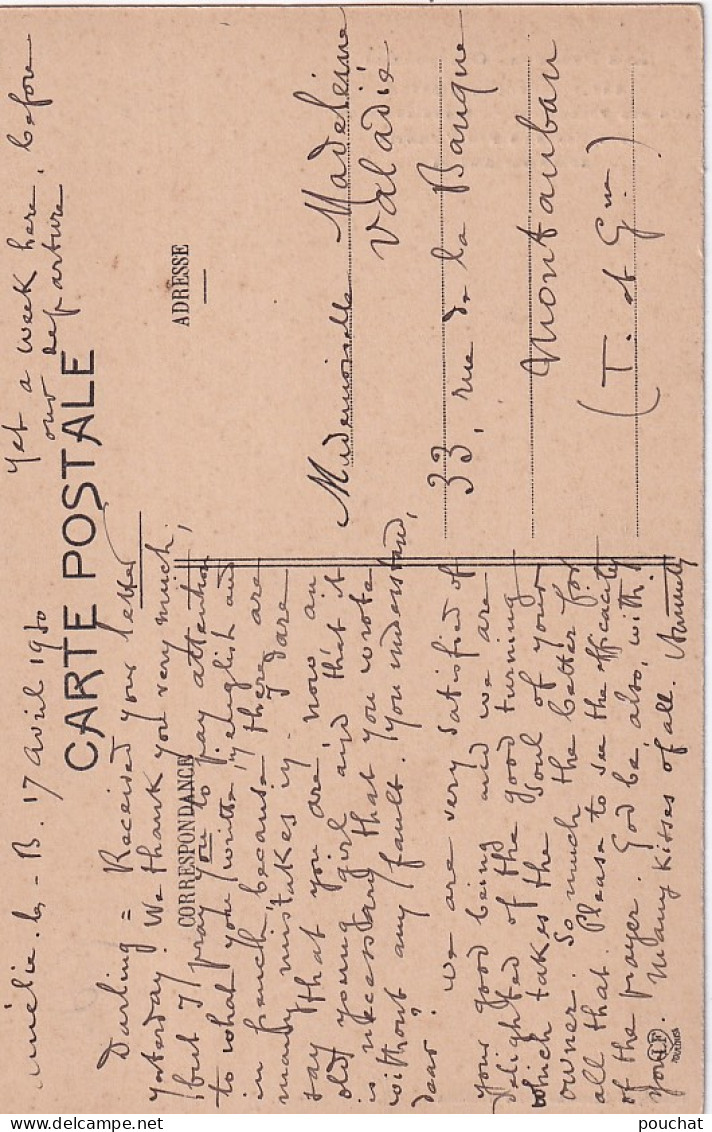 Amélie-les-B. 17 avril 1930
CARTE POSTALE
CORRESPONDANCE
Darling = Received your letter
yesterday. We thank you very much.
but I pray you to pay attention
to what you write, in english and
in french, because there are
many mistakes in. I dare
say that you are, now an
old young girl and that it
is necessary that you wrote
without any fault. You understand,
dear?
We are very satisfied of
your good being and we are
delighted of the good turning
which takes the soul of your
owner. So much the better for
all that. Please to see the efficacity
of the prayer. God be, also, with
you. Many kisses of all.
Yet a week here, before
our departure.
ADRESSE
Mademoiselle Madeleine
Valadié
33, rue de la Banque
Montauban
(T. et Gne)
TOULOUSE
pouchat